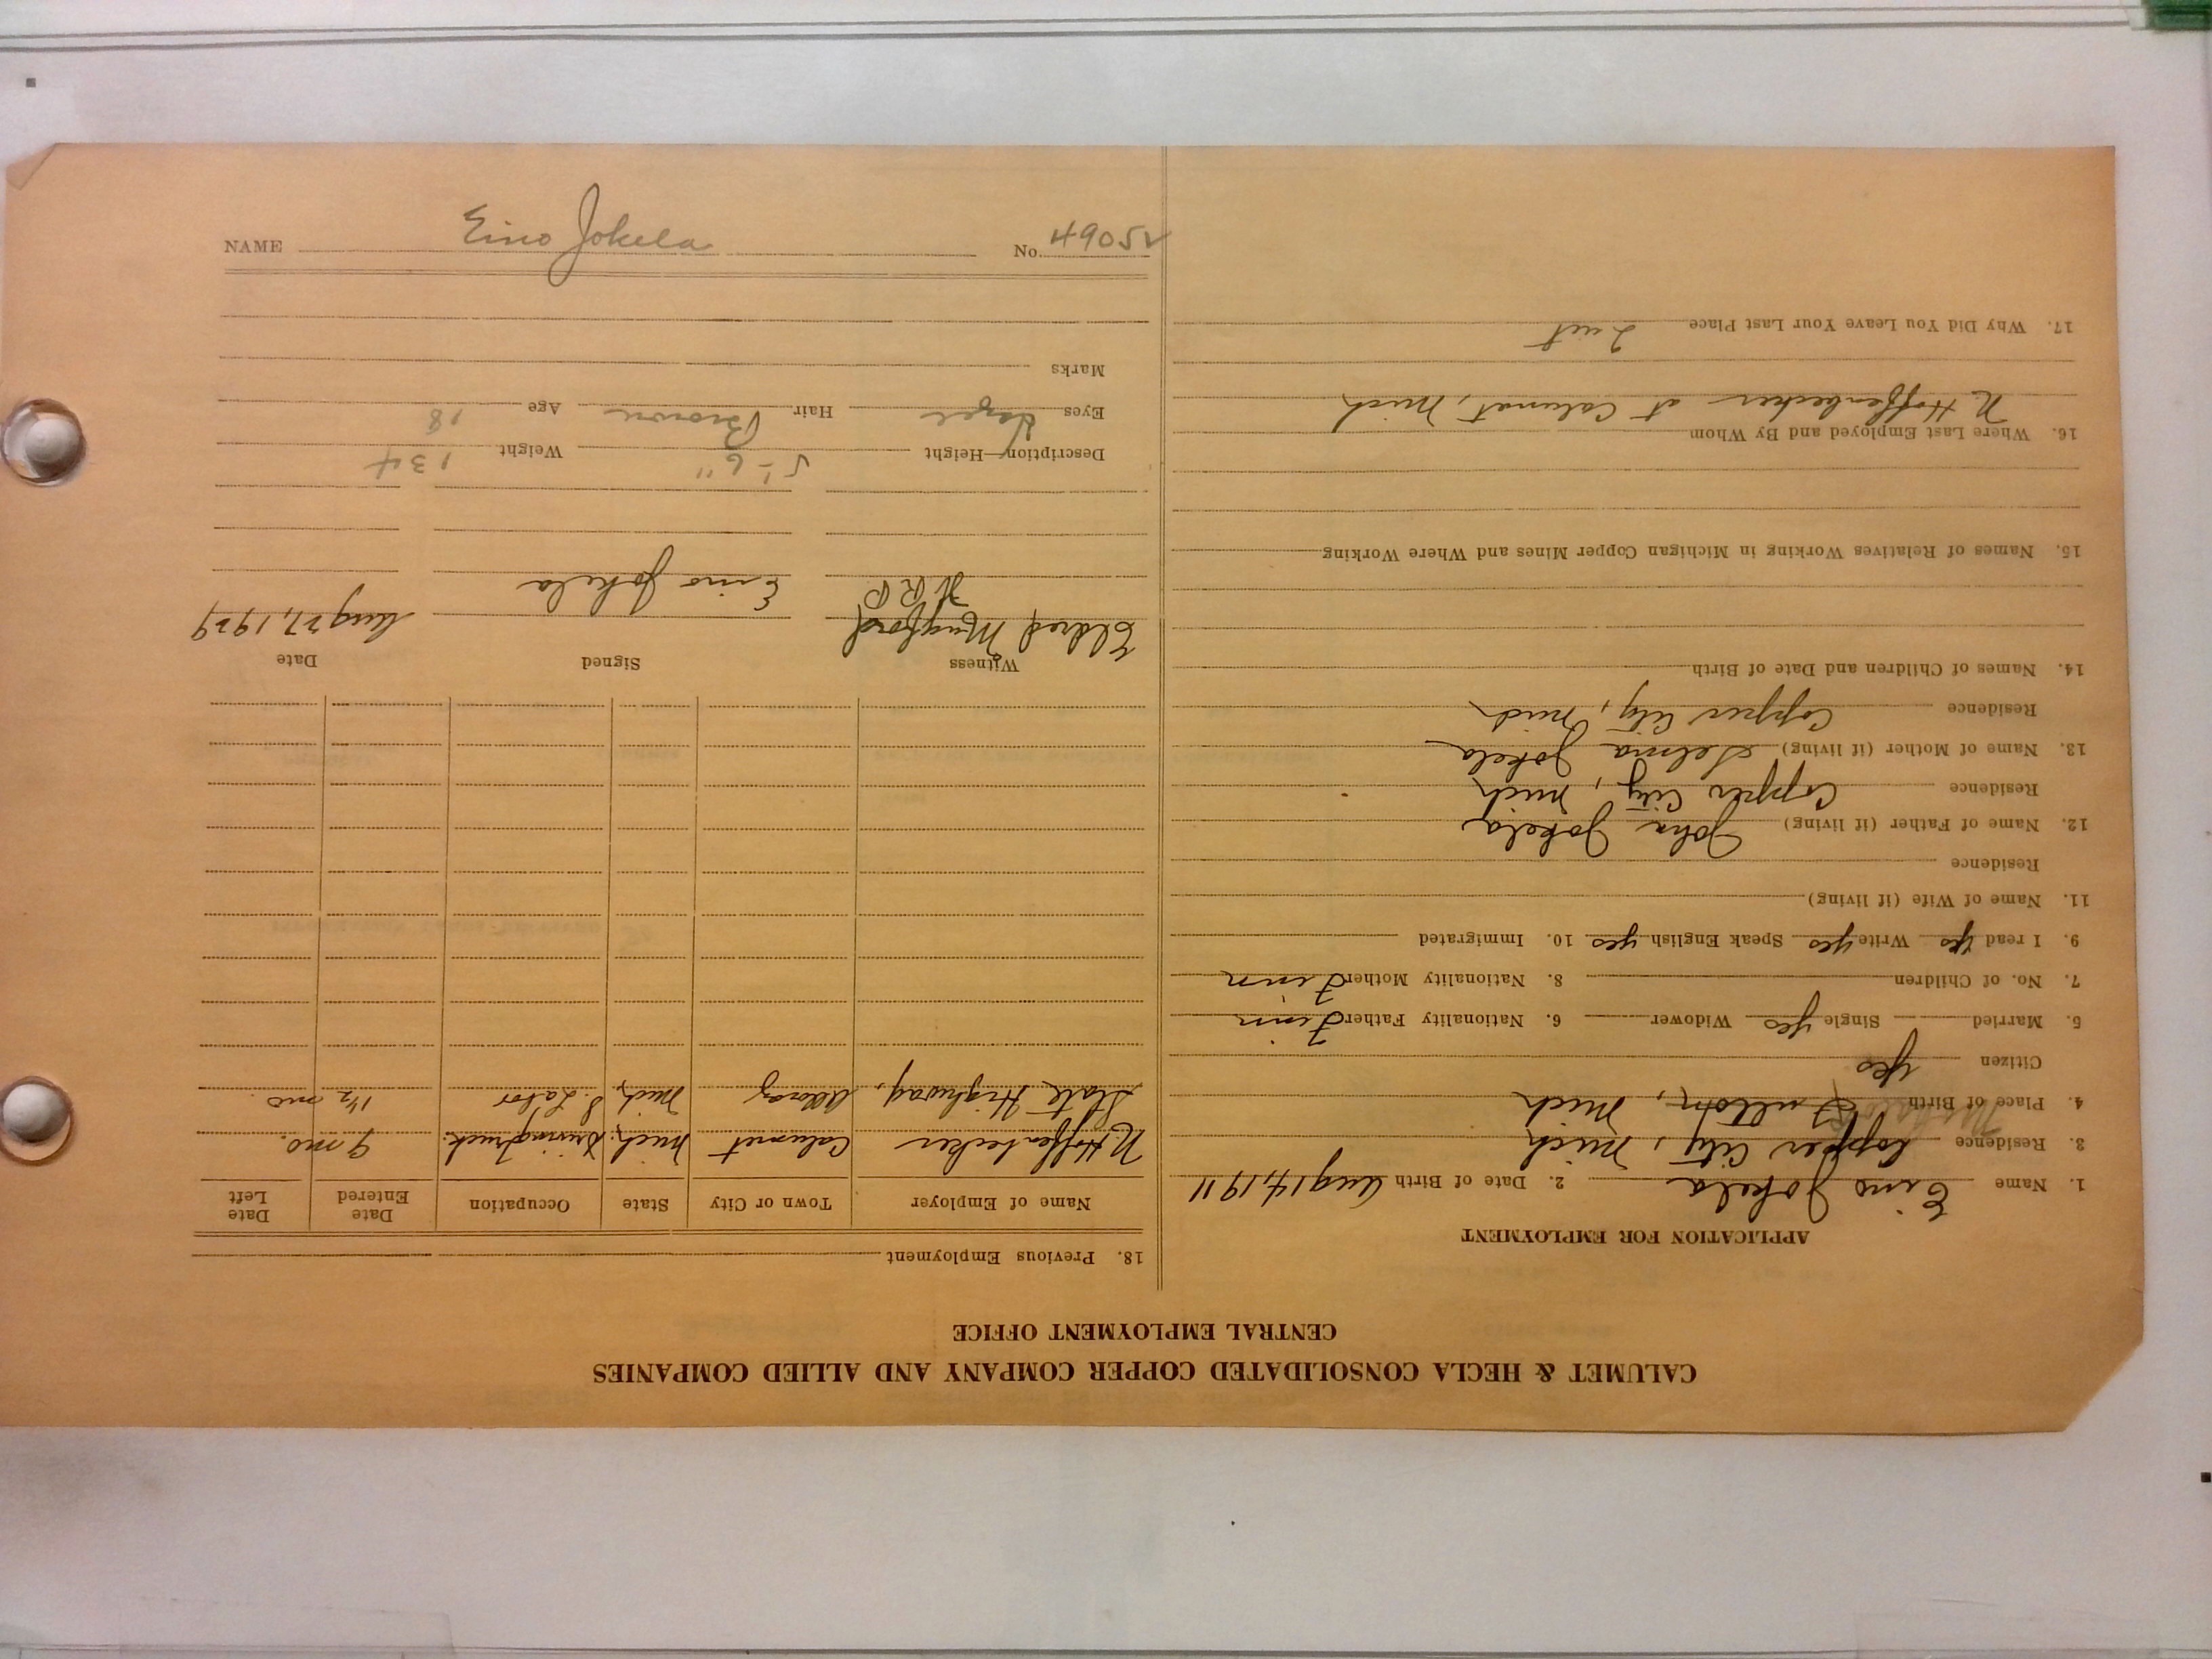 CALUMET & HECLA CONSOLIDATED COPPER COMPANY AND ALLIED COMPANIES
CENTRAL EMPLOYMENT OFFICE
APPLICATION FOR EMPLOYMENT
1. Name Eino Jokela 2. Date of Birth Aug 14, 1911
3. Residence Copper City, Mich
4. Place of Birth Fulton, Mich
Citizen yes
5. Married Single yes Widower 6. Nationality Father Finn
7. No. of Children 8. Nationality Mother Finn
9. I read yes Write yes Speak English yes 10. Immigrated
11. Name of Wife (if living)
Residence
12. Name of Father (if living) John Jokela
Residence Copper City, Mich
13. Name of Mother (if living) Selma Jokela
Residence Copper City, Mich
14. Names of Children and Date of Birth
15. Names of Relatives Working in Michigan Copper Mines and Where Working
16. Where Last Employed and By Whom
N. Hoffenbecker at Calumet, Mich
17. Why Did You Leave Your Last Place Quit
18. Previous Employment
Name of Employer Town or City State Occupation Date Entered Date Left
N. Hoffenbecker Calumet Mich. Driving Truck. 9 mo.
State Highway, Allouez Mich, S. Labor 1 1/2 mo.
Witness Signed Date
Eldred Mugford Eino Jokela Aug 27, 1929
Description—Height 5'-6" Weight 134
Eyes Hazel Hair Brown Age 18
Marks
NAME Eino Jokela No. 49052